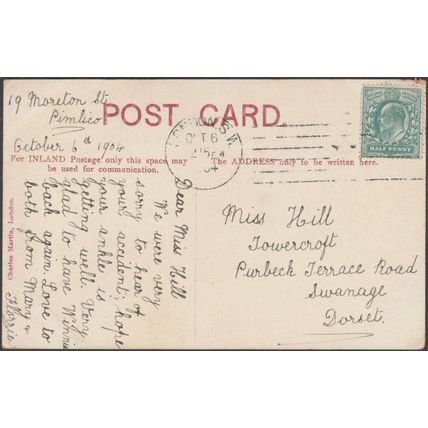 19 Moreton St.
Pimlico
October 6th 1904
POST CARD.
For INLAND Postage only this space may
be used for communication.
The ADDRESS only to be written here.
LONDON. S.W.
OCT 6
04
HALF PENNY
Charles Martin, London.
Dear Miss Hill
We were very
sorry to hear of
your accident; hope
your ankle is
getting well. Very
glad to have Winnie
back again. Love to
both from Mary &
Florrie
Miss Hill
Towercroft
Purbeck Terrace Road
Swanage
Dorset.